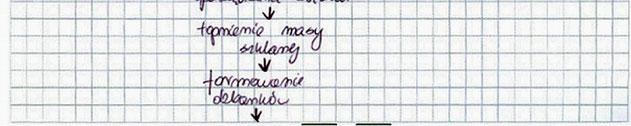 ↓
topnienie masy
szklanej
↓
formowanie
dzbanków
↓